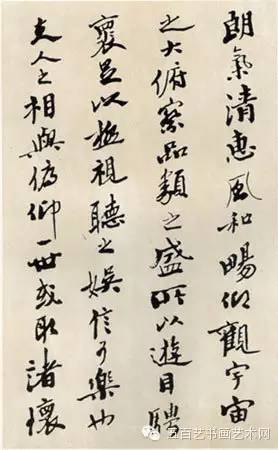 朗氣清惠風和暢仰觀宇宙
之大俯察品類之盛所以遊目騁
襄足以極視聽之娛信可樂也
夫人之相與俯仰一世或取諸懷
五百艺书画艺术网